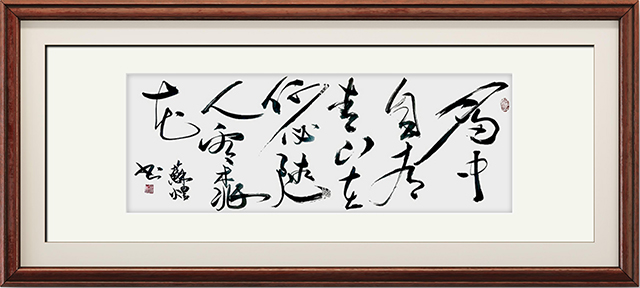 胸中
自有
青山在
何必随
人看桃
花
蘇
书